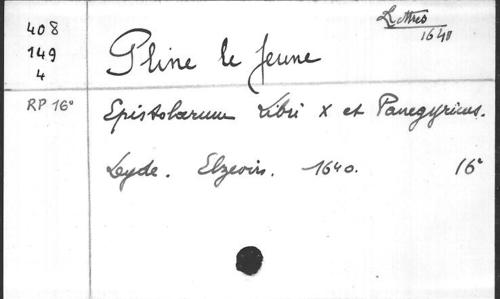 408
149
4
Lettres
1640
Pline le Jeune
RP 16°
Epistolarum Libri X et Panegyricus.
Leyde. Elzevirs. 1640. 16°